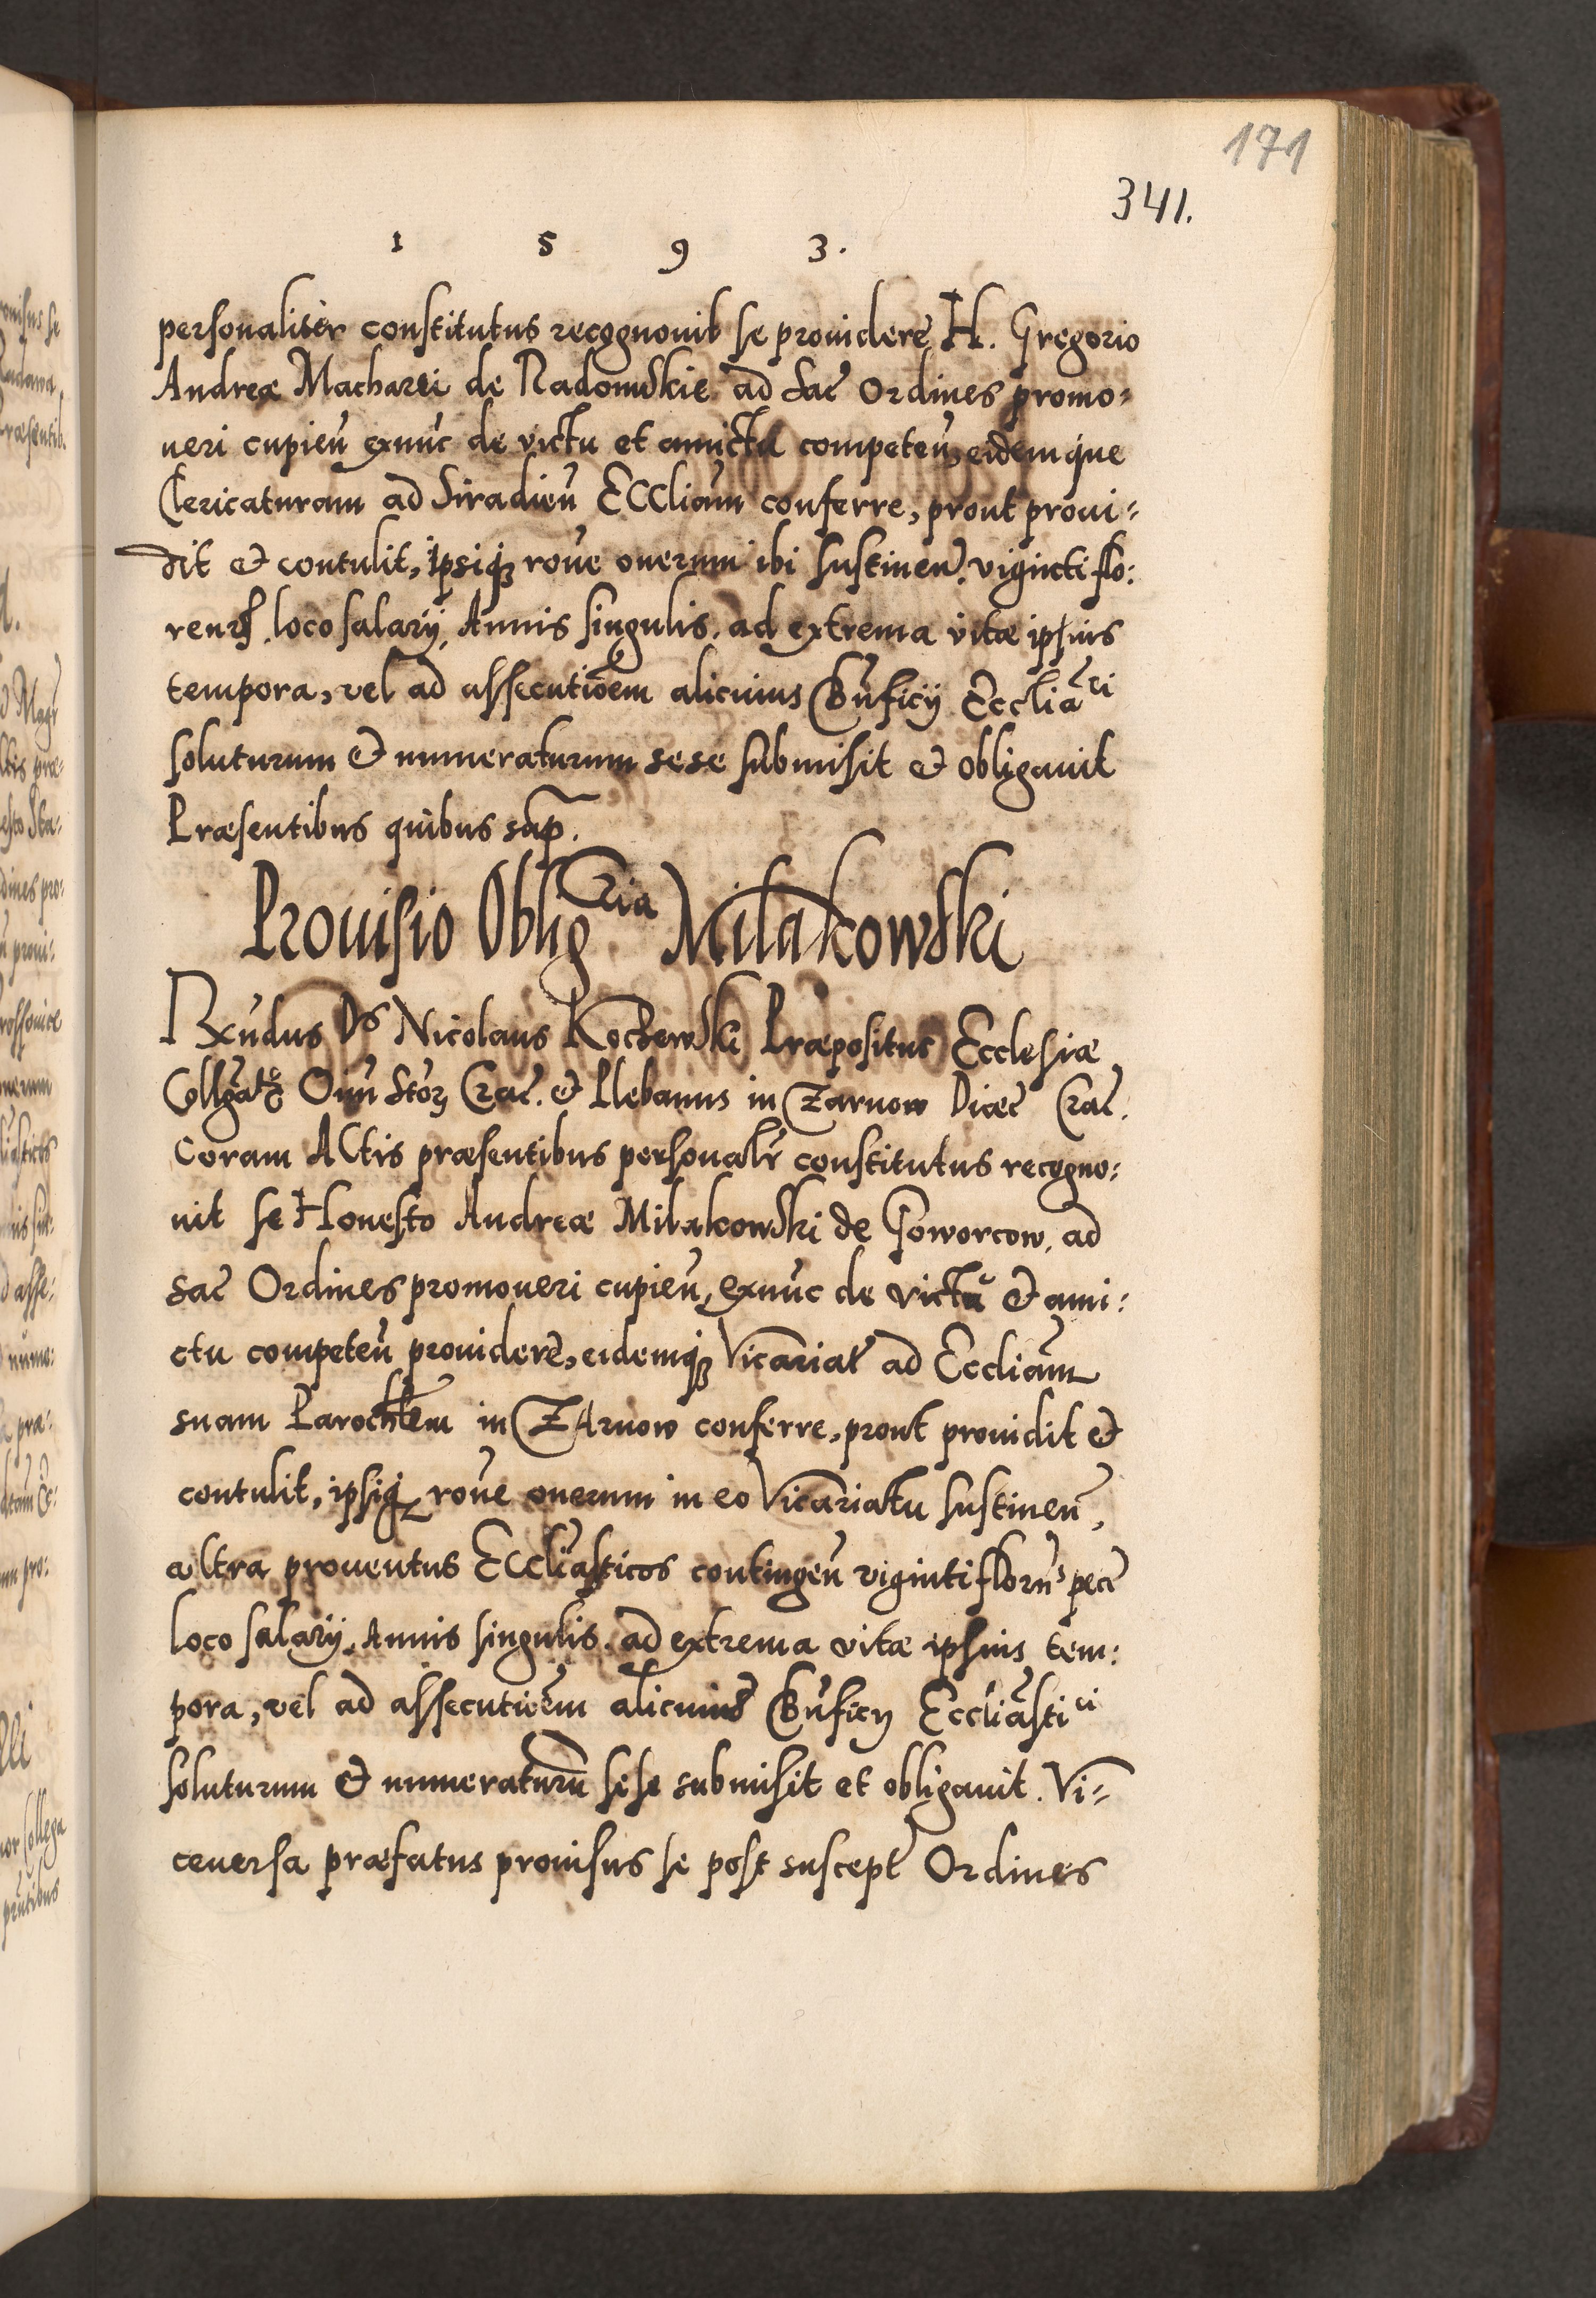 171
341.
1 5 9 3.
personaliter constitutus recognouit se prouidere H. Gregorio
Andreæ Macharei de Radomskie ad Sac̃ Ordines promo:
ueri cupieñ exnũc de victu et amictu competeñ, eidemque
Clericaturam ad Siradieñ Eccliam̃ conferre, prout proui:
dit & contulit, ipsiq3 rõne onerum ibi sustineñ. viginti flo:
renos loco salarij, Annis singulis, ad extrema vitæ ipsius
tempora, vel ad assecutiõem alicuius Bñficij Ecclia᷉ci
soluturum & numeraturum sese submisit & obligauit
Præsentibus quibus sup̃.
Prouisio Oblig̃ria Milakowski
Rxũdus Ds Nicolaus Kochewski Præpositus Ecclesiæ
Collg̃atæ Oĩm Stor̃ Crac̃. & Plebanus in Zarnow Dicec̃ Crac̃.
Coram Actis præsentibus personalr̃ constitutus recogno:
uit se Honesto Andreæ Milakowski de Goworcow, ad
sac̃ Ordines promoueri cupieñ, exnũc de victũ & ami:
ctu competeñ prouidere, eidemq3 Vicariat̃ ad Eccliam̃
suam Parochl̃em in Zarnow conferre, prout prouidit &
contulit, ipsiq3 rõne onerum in eo Vicariatu sustineñ,
ultra prouentus Eccliãsticos contingeñ viginti florñs pec̃
loco salarij, Annis singulis, ad extrema vitæ ipsius tem:
pora, vel ad assecutiõem alicuius Bñficij Eccliãstici
soluturum & numeraturũ sese submisit et obligauit. Vi:
ceuersa præfatus prouisus se post suscept̃ Ordines